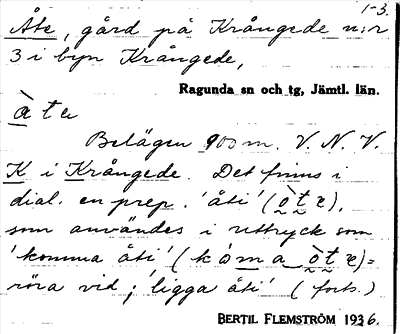 1-3.
Åte, gård på Krångede n:r
3 i byn Krångede,
Ragunda sn och tg, Jämtl. län.
àte
Belägen 900 m. V. N. V.
K i Krångede. Det finns i
dial. en prep. 'åti' (òte),
som användes i uttryck som
'komma åti' (kóma òte)=
röra vid; 'ligga åti' (forts.)
BERTIL FLEMSTRÖM 1936.